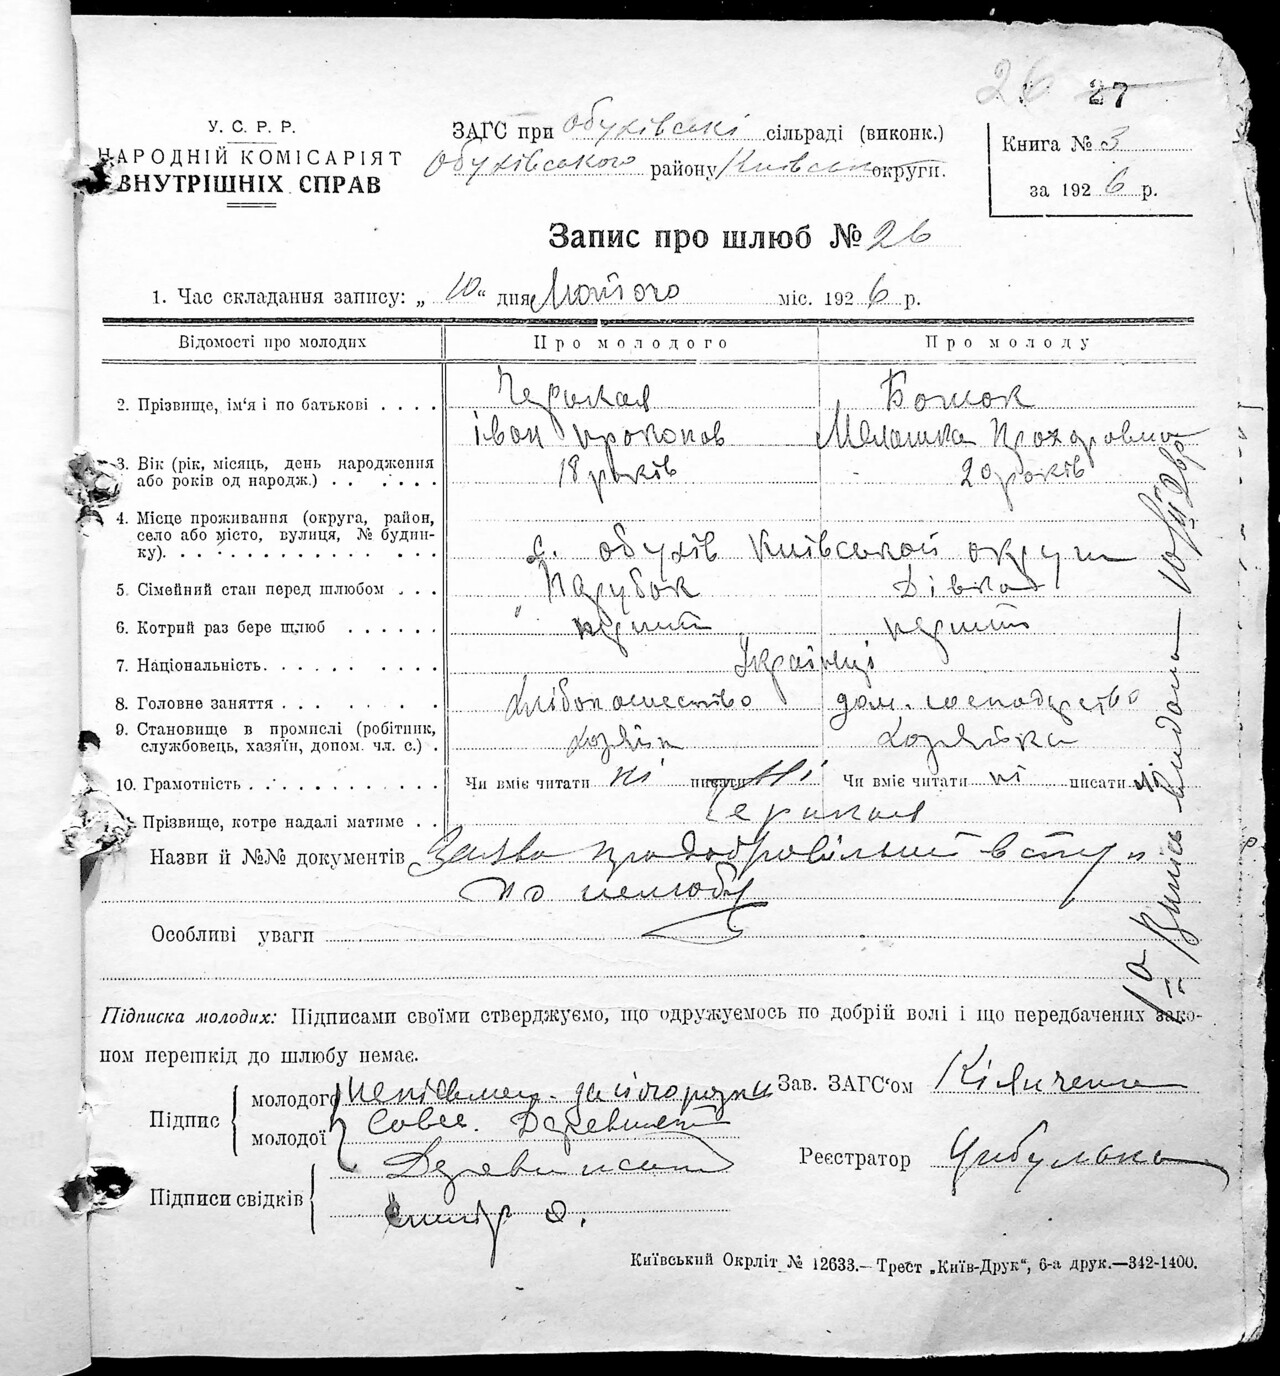 26 27
У. С. Р. Р.
НАРОДНІЙ КОМІСАРІЯТ
ВНУТРІШНІХ СПРАВ
ЗАГС при Обухівські сільраді (виконк.)
Обухівського району Київськ округи.
Книга № 3
за 1926 р.
Запис про шлюб № 26
1. Час складання запису: „10" дня Лютого міс. 1926 р.
Відомості про молодих Про молодого Про молоду
2. Прізвище, ім'я і по батькові . . . . Божок
іван прокопов Мелашка Прохоровна
3. Вік (рік, місяць, день народження
або років од народж.) . . . . . . 18 років 20 років
4. Місце проживання (округа, район,
село або місто, вулиця, № будин-
ку). . . . . . . . . . . . . . . с. обухів Київськой округи
5. Сімейний стан перед шлюбом . . . Парубок Дівка
6. Котрий раз бере шлюб . . . . . . перший перший
7. Національність. . . . . . . . . . Українці
8. Головне заняття . . . . . . . . . Хлібопашество дом. господарство
9. Становище в промислі (робітник,
службовець, хазяїн, допом. чл. с.) . хозяїн хозяйка
10. Грамотність . . . . . . . . . . . Чи вміє читати ні писати ні Чи вміє читати ні писати ні
Прізвище, котре надалі матиме . .
Назви й №№ документів Заява про добровільний вступ
до шлюбу
Особливі уваги
Підписка молодих: Підписами своїми стверджуємо, що одружуємось по добрій волі і що передбачених зако-
ном перешкід до шлюбу немає.
Підпис молодого неписьмен. за його
молодої
Зав. ЗАГС'ом
Підписи свідків
Реєстратор Цибулько
Київський Окрліт № 12633.— Трест „Київ-Друк", 6-а друк.—342-1400.